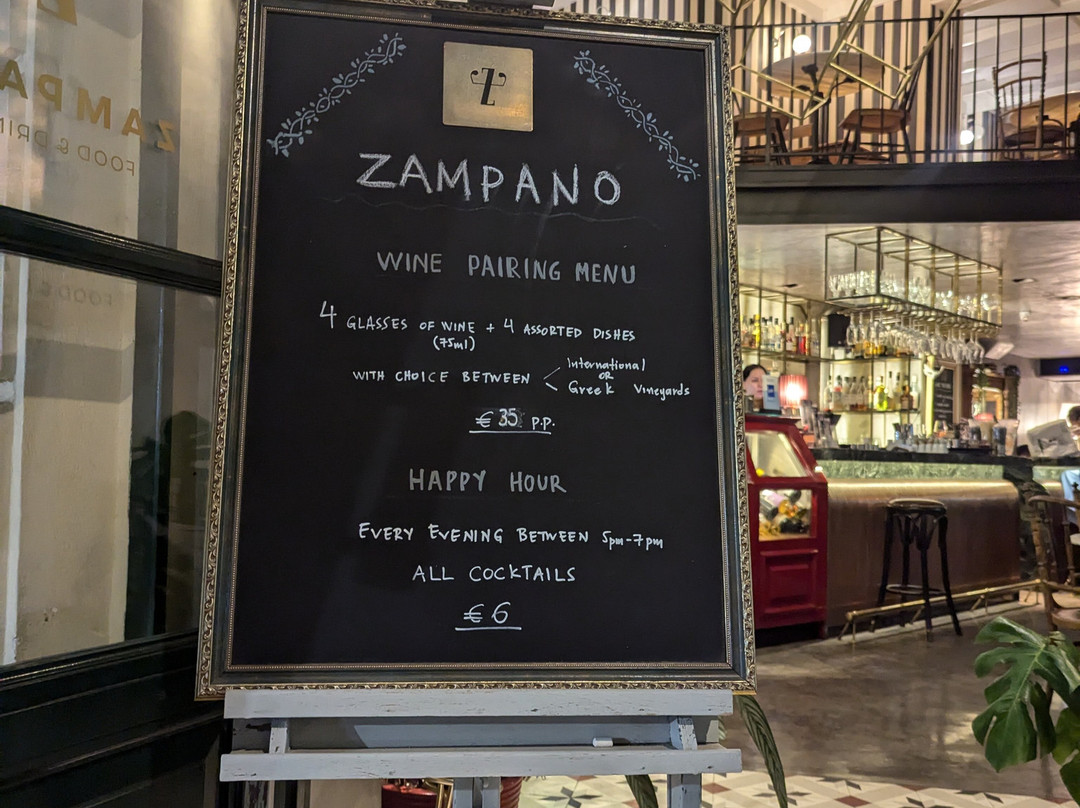 Z
ZAMPANO
WINE PAIRING MENU
4 GLASSES OF WINE + 4 ASSORTED DISHES
(75ml)
WITH CHOICE BETWEEN International
OR
Greek Vineyards
€ 35 P.P.
HAPPY HOUR
EVERY EVENING BETWEEN 5pm-7pm
ALL COCKTAILS
€ 6
Z
ZAMPA
FOOD & DRIN
FOOD &